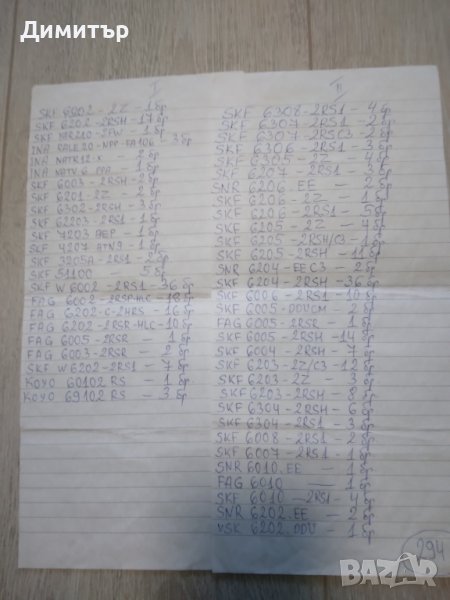 Димитър
I
SKF 6202-2Z - 1 бр
SKF 6202-2RSH - 17 бр
SKF 2FW - 1 бр
INA RALE20-NPP-FA106 - 3 бр
INA NATR12-X - 2 бр
INA NATV-6 PPA - 1 бр
SKF 6003-2RSH - 2 бр
SKF 6201-2Z - 2 бр
SKF 6302-2RSH - 3 бр
SKF 62203-2RS1 - 1 бр
SKF 7203 BEP - 1 бр
SKF 4207 ATN9 - 1 бр
SKF 3205A-2RS1 - 2 бр
SKF 51100 - 5 бр
SKF W 6002-2RS1 - 36 бр
FAG 6002-2RSR-HLC - 18 бр
FAG 6202-C-2HRS - 16 бр
FAG 6202-2RSR-HLC - 10 бр
FAG 6005-2RSR - 1 бр
FAG 6003-2RSR - 2 бр
SKF W6202-2RS1 - 7 бр
KOYO 60102 RS - 1 бр
KOYO 69102 RS - 3 бр
II
SKF 6308-2RS1 - 4 бр
SKF 6307-2RS1 - 2 бр
SKF 6307-2RSC3 - 2 бр
SKF 6306-2RS1 - 3 бр
SKF 6305-2Z - 4 бр
SKF 6207-2RS1 - 3 бр
SNR 6206.EE - 2 бр
SKF 6206-2Z - 1 бр
SKF 6206-2RS1 - 5 бр
SKF 6205-2Z - 4 бр
SKF 6205-2RSH/C3 - 1 бр
SKF 6205-2RSH - 11 бр
SNR 6204-EEC3 - 2 бр
SKF 6204-2RSH - 36 бр
SKF 6006-2RS1 - 10 бр
SKF 6005-DDUCM - 2 бр
FAG 6005-2RSR - 1 бр
SKF 6005-2RSH - 14 бр
SKF 6004-2RSH - 7 бр
SKF 6203-2Z/C3 - 12 бр
SKF 6203-2Z - 3 бр
SKF 6203-2RSH - 8 бр
SKF 6304-2RSH - 6 бр
SKF 6304-2RS1 - 3 бр
SKF 6008-2RS1 - 2 бр
SKF 6007-2RS1 - 1 бр
SNR 6010.EE - 1 бр
FAG 6010 - 1 бр
SKF 6010-2RS1 - 4 бр
SNR 6202.EE - 2 бр
NSK 6202.DDU - 1 бр
294
BAZAR.BG